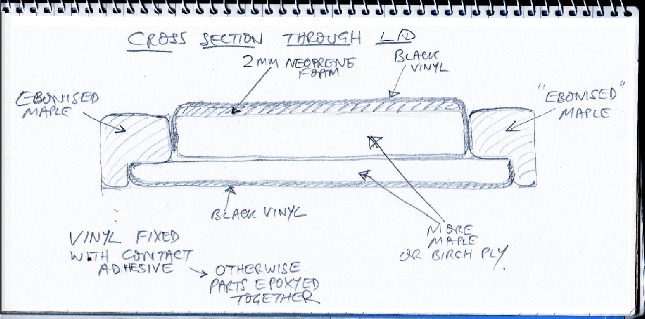 CROSS SECTION THROUGH LID
2MM NEOPRENE
FOAM
BLACK
VINYL
EBONISED
MAPLE
"EBONISED"
MAPLE
BLACK VINYL
MORE
MAPLE
OR BIRCH PLY
VINYL FIXED
WITH CONTACT
ADHESIVE
OTHERWISE
PARTS EPOXYED
TOGETHER